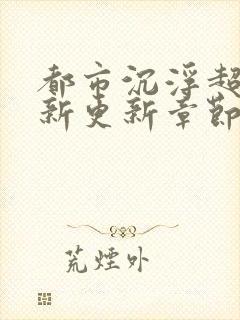 都市沉浮超
新更新章節
荒煙外